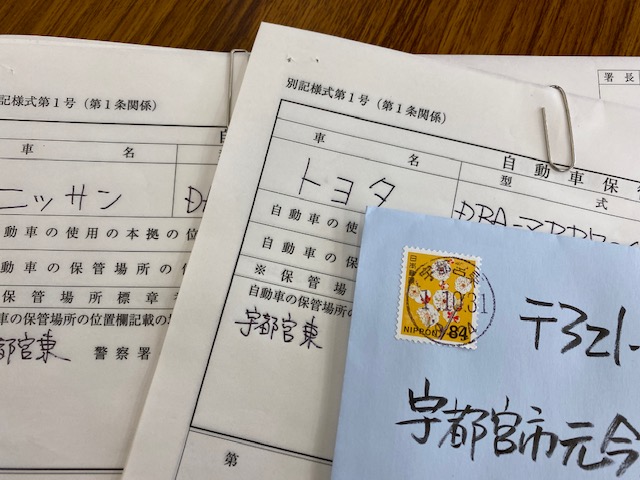 記様式第1号（第1条関係）
車名
ニッサン
動車の使用の本拠の位
動車の保管場所の
保管場所標章
車の保管場所の位置欄記載の
都宮東 警察署
別記様式第1号（第1条関係）
自動車保
車名
型式
トヨタ
DBA-
自動車の使
自動車の保
※保管場
自動車の保管場所の
宇都宮東
第
署長
日本郵便
10.31
NIPPON 84
〒321-
宇都宮市元今